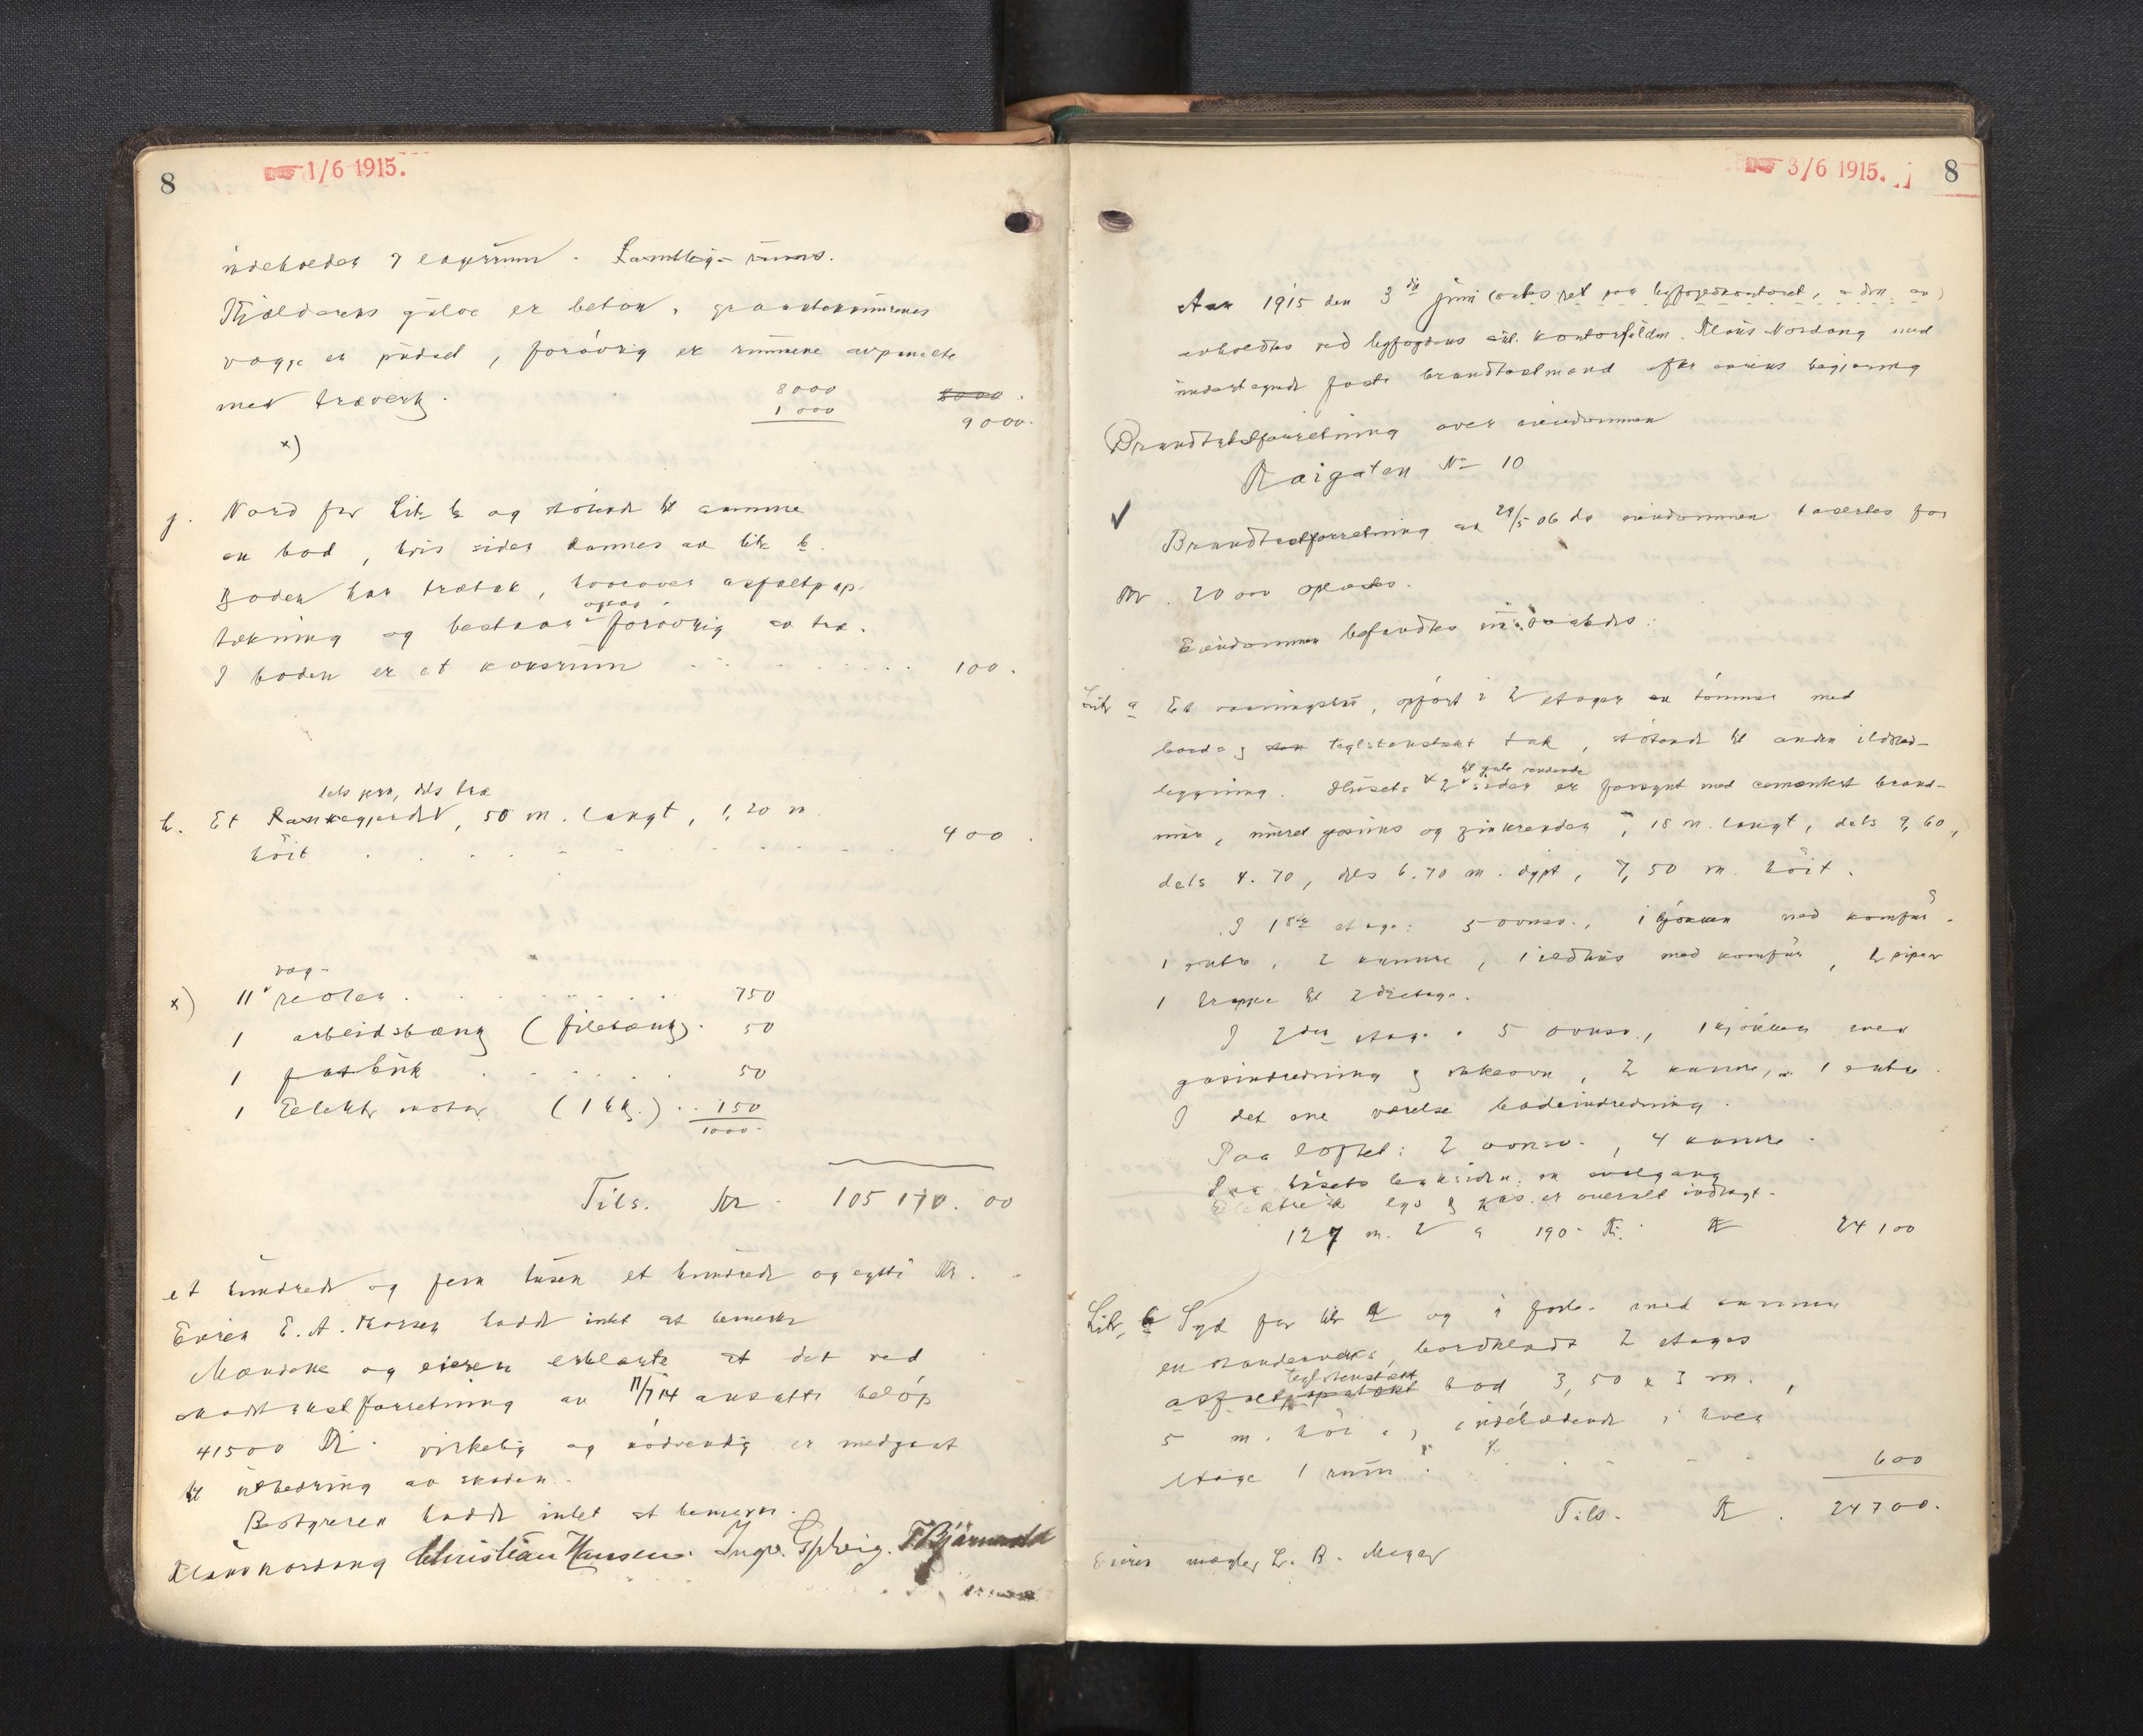 8
1/6 1915.
indeholder 7 lagerrum. Samtlige rums.
Kjælderens gulve er beton,
vægge er pudset, forøvrig er rummene avpanelte
med træverk.
8000
1000
8000.
9000.
x)
g. Nord for Litr. b og stötende til samme
en bod, hvis sider dannes av litr. b.
Boden har trætak, hvorover asfaltpap-
tækning og bestaar ogsaa forövrig av træ.
I boden er et koksrum 100.
dels jern, dels træ
h. Et stakkegjerde, 50 m. langt, 1,20 m
höit 400.
x) 11 væg-reoler 750
1 arbeidsbænk (filebænk). 50
1 50
1 Elektr. motor (1 hk.) 150
1000.
Tils. Kr. 105 170.00
et hundrede og fem tusen et hundrede og sytti Kr.
Eieren E. A. hadde intet at bemerke
Mændene og eieren erklærte at det ved
skadetakstforretning av 11/7 14 ansatte belöp
41500 Kr. virkelig og nödvendig er medgaat
til utbedring av skaden.
Bestyreren hadde intet at bemerke.
Klaus Nordang Christian Hansen. Ingv.
3/6 1915.
8
Aar 1915 den 3die juni
avholdtes ved byfogdens aut. kontorfuldm. Klaus Nordang med
undertegnede faste brandtakstmænd efter eierens begjæring
Brandtakstforretning over eiendommen
Kaigaten No 10
✓ Brandtakstforretning av 29/5 06 da eiendommen taxertes for
Kr. 20000 oplæstes.
Eiendommen befandtes
Litr. a Et vaaningshus, opfört i 2 etager av tömmer med
bord og teglstenstækt tak, stötende til anden ildsted-
til gate vendende
leggning. Husets 2 sider er forsynt med cementert brand-
mur, muret gesims og zinkrender, 18 m. langt, dels 9,60,
dels 4.70, dels 6.70 m. dypt, 7,50 m. höit.
I 1ste etage: 5 ovnsv., 1 kjökken med komfur.
1 entre, 2 kamre, 1 ildhus med komfur, 2 piper
1 trappe til 2den etage.
I 2den etage: 5 ovnsv., 1 kjökken med
gasindredning og bakeovn, 2 kamre, 1 entre.
I det ene værelse badeindredning.
Paa loftet: 2 ovnsv., 4 kamre.
Paa husets bakside en svalgang
Elektrisk lys og gas er overalt indlagt.
127 m. 2 a 190 Kr. Kr 24100
Litr. b Syd for litr. a og i forb. med samme
en standerverks, bordklædt 2 etages
teglstenstækt
asfaltpaptækt bod 3,50 x 3 m.,
5 m. höi, indeholdende i hver
etage 1 rum. 600
Tils. Kr. 24700.
Eieren mægler L. B. Meyer